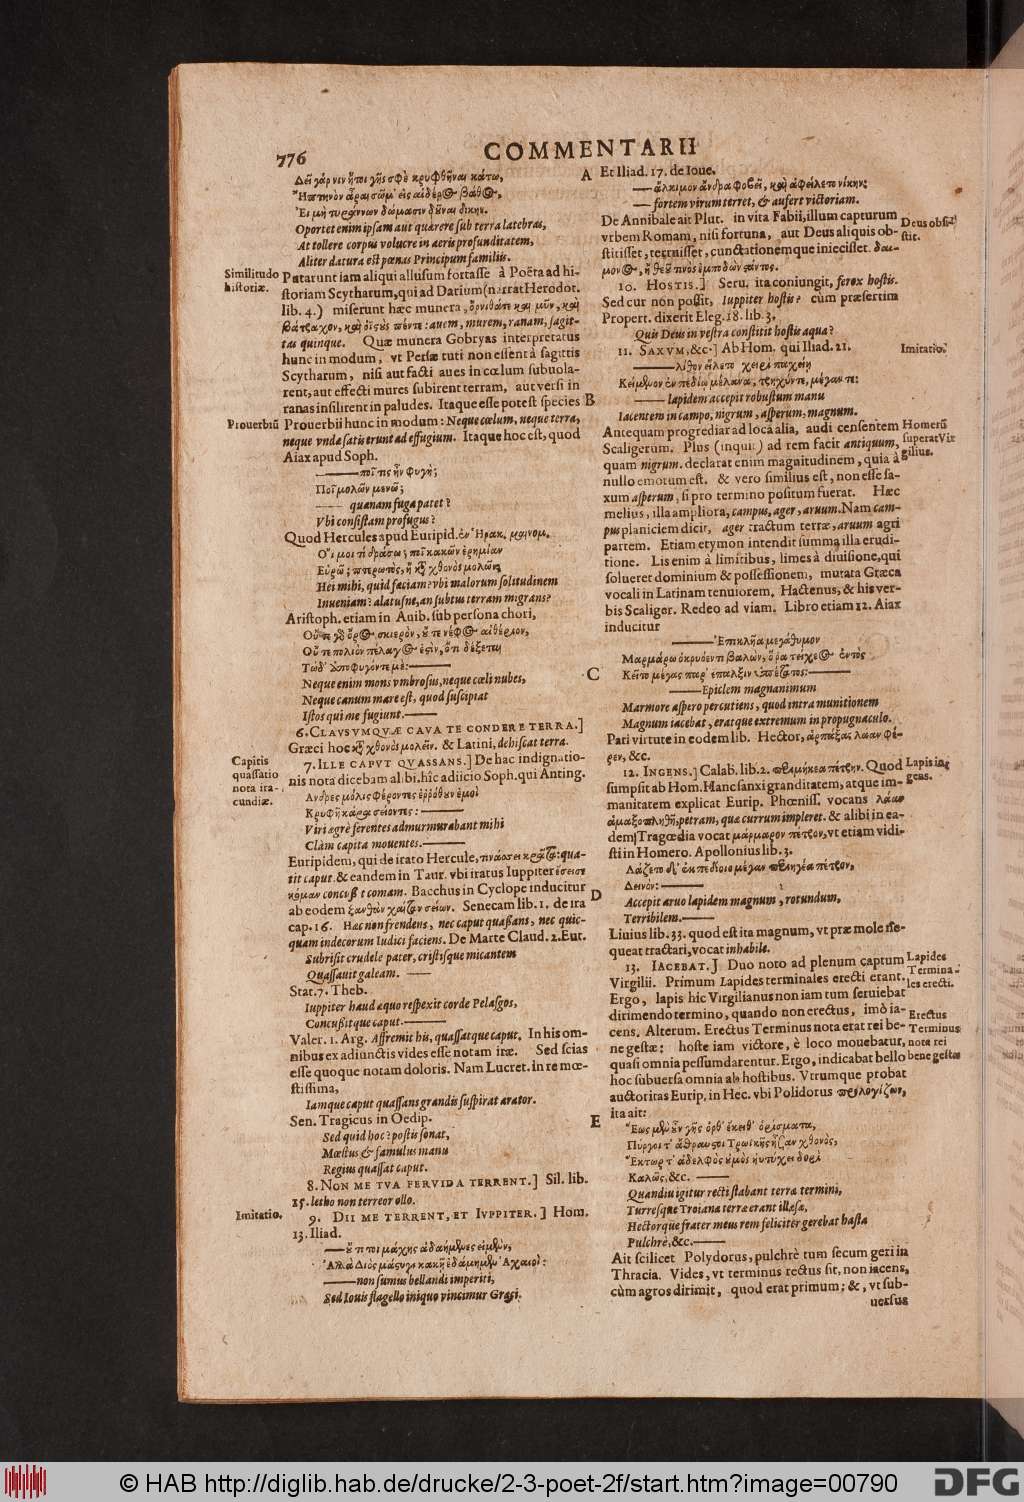 776
COMMENTARII
Δεῖ γάρ νιν ἤτοι γῆς σφὲ κρυφθῆναι κάτω,
Ἢ πτηνὸν ἆραι σῶμ' εἰς αἰθέρος βάθος,
Εἰ μὴ τυράννων δώμασιν δώσει δίκην.
Oportet enim ipsam aut quærere sub terra latebras,
At tollere corpus volucre in aeris profunditatem,
Aliter datura est pœnas Principum familiis.
Similitudo
historiæ.
Putarunt iam aliqui allusum fortasse à Poëta ad hi-
storiam Scytharum, qui ad Darium (narrat Herodot.
lib. 4.) miserunt hæc munera, ὄρνιθάτε καὶ μῦν, καὶ
βάτραχον, καὶ ὀϊςοὺς πέντε: auem, murem, ranam, sagit-
tas quinque. Quæ munera Gobryas interpretatus
hunc in modum, vt Persæ tuti non essent à sagittis
Scytharum, nisi aut facti aues in cœlum subuola-
rent, aut effecti mures subirent terram, aut versi in
ranas insilirent in paludes. Itaque esse potest species
Prouerbiū
Prouerbii hunc in modum: Neque cœlum, neque terra,
neque vnda satis erunt ad effugium. Itaque hoc est, quod
Aiax apud Soph.
——ποῖ τις ἦν φυγή;
Ποῖ μολῶν μενῶ;
—— quanam fuga patet?
Vbi consistam profugus?
Quod Hercules apud Euripid. ἐν Ἡρακ. μαινομ.
Οἴ μοι τί δράσω; ποῖ κακῶν ἐρημίαν
Εὕρω; πτερωτὸς, ἢ κατὰ χθονὸς μολών;
Hei mihi, quid faciam? vbi malorum solitudinem
Inueniam? alatusne, an subtus terram migrans?
Aristoph. etiam in Auib. sub persona chori,
Οὔτε γὰρ ὄρος σκιερὸν, οὔτε νέφος αἰθέριον,
Οὔτε πολιὸν πέλαγος ἐςὶν, ὅτι δέξεται
Τώδ' ἀποφυγόντε μέ:——
Neque enim mons vmbrosus, neque cœli nubes,
Neque canum mare est, quod suscipiat
Istos qui me fugiunt.——
6. CLAVSVMQVÆ CAVA TE CONDERE TERRA.]
Græci hoc κατὰ χθονὸς μολεῖν. & Latini, dehiscat terra.
Capitis
quassatio
nota ira-
cundiæ.
7. ILLE CAPVT QVASSANS.] De hac indignatio-
nis nota dicebam alibi. hîc adiicio Soph. qui Anting.
Ἄνδρες μόλις φέροντες ἐῤῥόθουν ἐμοὶ
Κρυφῆ κάρα σείοντες:——
Viri ægrè ferentes admurmurabant mihi
Clàm capita mouentes.——
Euripidem, qui de irato Hercule, τινάσσει κρᾶτα: qua-
tit caput. & eandem in Taur. vbi iratus Iuppiter ἔσεισε
κόμαν concussit comam. Bacchus in Cyclope inducitur
ab eodem ξανθὰν χαίταν σείων. Senecam lib. 1. de ira
cap. 16. Hæc non frendens, nec caput quaßans, nec quic-
quam indecorum Iudici faciens. De Marte Claud. 2. Eut.
Subrisit crudele pater, cristisque micantem
Quassauit galeam.——
Stat. 7. Theb.
Iuppiter haud æquo respexit corde Pelasgos,
Concussitque caput.——
Valer. 1. Arg. Affremit his, quassatque caput. In his om-
nibus ex adiunctis vides esse notam iræ. Sed scias
esse quoque notam doloris. Nam Lucret. in re mœ-
stissima,
Iamque caput quassans grandis suspirat arator.
Sen. Tragicus in Oedip.
Sed quid hoc? postis sonat,
Mœstus & famulus manu
Regius quassat caput.
8. NON ME TVA FERVIDA TERRENT.] Sil. lib.
15. letho non terreor ollo.
Imitatio.
9. DII ME TERRENT, ET IVPPITER.] Hom.
13. Iliad.
——οὔ τι τοι μάχης ἀδαήμονες εἰμὲν,
Ἀλλὰ Διὸς μάςιγι κακῆ ἐδάμημεν Ἀχαιοί:
——non sumus bellandi imperiti,
Sed Iouis flagello iniquo vincimur Græci.
A
B
C
D
E
Et Iliad. 17. de Ioue.
——ἄλκιμον ἄνδρα φοβεῖ, καὶ ἀφείλετο νίκην:
——fortem virum terret, & aufert victoriam.
De Annibale ait Plut. in vita Fabii, illum capturum
vrbem Romam, nisi fortuna, aut Deus aliquis ob-
stitisset, terruisset, cunctationemque iniecisset. δαί-
μονος, ἢ θεοῦ τινὸς ἐμποδὼν ςάντος.
Deus obsti-
stit.
10. HOSTIS.] Seru. ita coniungit, ferox hostis.
Sed cur non possit, Iuppiter hostis? cùm præsertim
Propert. dixerit Eleg. 18. lib. 3.
Quis Deus in vestra constitit hostis aqua?
11. SAXVM, &c.] Ab Hom. qui Iliad. 21.
Imitatio.
——λίθον εἵλετο χειρὶ παχείῃ
Κείμενον ἐν πεδίῳ μέλανα, τρηχύντε, μέγαν τε:
——lapidem accepit robustum manu
Iacentem in campo, nigrum, asperum, magnum.
Antequam progrediar ad loca alia, audi censentem
Scaligerum. Plus (inquit) ad rem facit antiquum,
quam nigrum. declarat enim magnitudinem, quia à
nullo emotum est. & vero similius est, non esse sa-
xum asperum, si pro termino positum fuerat. Hæc
melius, illa ampliora, campus, ager, aruum. Nam cam-
pus planiciem dicit, ager tractum terræ, aruum agri
partem. Etiam etymon intendit summa illa erudi-
tione. Lis enim à limitibus, limes à diuisione, qui
solueret dominium & possessionem, mutata Græca
vocali in Latinam tenuiorem. Hactenus, & his ver-
bis Scaliger. Redeo ad viam. Libro etiam 12. Aiax
inducitur
Homerū
superat Vir
gilius.
——Ἐπικλῆα μεγάθυμον
Μαρμάρῳ ὀκρυόεντι βαλὼν, ὅρα τείχεος ἐντὸς
Κεῖτο μέγας παρ' ἔπαλξιν ὑπέρτατος:——
——Epiclem magnanimum
Marmore aspero percutiens, quod intra munitionem
Magnum iacebat, eratque extremum in propugnaculo.
Pati virtute in eodem lib. Hector, ἁρπάξας λᾶαν φέ-
ρεν, &c.
12. INGENS.] Calab. lib. 2. περιμήκεα πέτρην. Quod
sumpsit ab Hom. Hanc sanxi granditatem, atque im-
manitatem explicat Eurip. Phœniss. vocans λᾶαν
ἁμαξοπληθῆ, petram, quæ currum impleret. & alibi in ea-
dem Tragœdia vocat μάρμαρον πέτρον, vt etiam vidi-
sti in Homero. Apollonius lib. 3.
Lapis in-
gens.
Λάζετο δ' ἐκ πεδίοιο μέγαν περιηγέα πέτρον,
Δεινὸν:——
Accepit aruo lapidem magnum, rotundum,
Terribilem.——
Liuius lib. 33. quod est ita magnum, vt præ mole ne-
queat tractari, vocat inhabile.
13. IACEBAT.] Duo noto ad plenum captum
Virgilii. Primum Lapides terminales erecti erant.
Ergo, lapis hîc Virgilianus non iam tum seruiebat
dirimendo termino, quando non erectus, imò ia-
cens. Alterum. Erectus Terminus nota erat rei be-
ne gestæ: hoste iam victore, è loco mouebatur,
quasi omnia pessumdarentur. Ergo, indicabat bello
hoc subuersa omnia ab hostibus. Vtrumque probat
auctoritas Eurip. in Hec. vbi Polidotus προλογίζων,
ita ait:
Lapides
Termina-
les erecti.
Erectus
Terminus
nota rei
bene gestæ
Ἕως μὲν οὖν γῆς ὀρθ' ἔκειθ' ὁρίσματα,
Πύργοι τ' ἄθραυςοι Τρωϊκῆς ἦσαν χθονὸς,
Ἕκτωρ τ' ἀδελφὸς οὑμὸς ηὐτύχει δορὶ
Καλῶς, &c. ——
Quandiu igitur recti stabant terræ termini,
Turresque Troiana terræ erant illæsæ,
Hectorque frater meus rem feliciter gerebat hasta
Pulchrè, &c.——
Ait scilicet Polydorus, pulchrè tum secum geri in
Thracia. Vides, vt terminus rectus sit, non iacens,
cùm agros dirimit, quod erat primum; &, vt sub-
uersus
© HAB http://diglib.hab.de/drucke/2-3-poet-2f/start.htm?image=00790
DFG